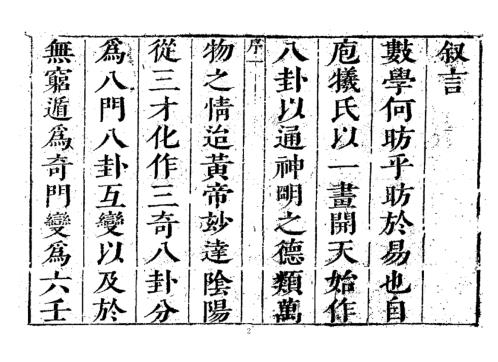 叙言
數學何昉乎昉於易也自
庖犧氏以一畫開天始作
八卦以通神明之德類萬
序一
物之情迨黃帝妙達陰陽
從三才化作三奇八卦分
爲八門八卦互變以及於
無窮遁爲奇門變爲六壬
2